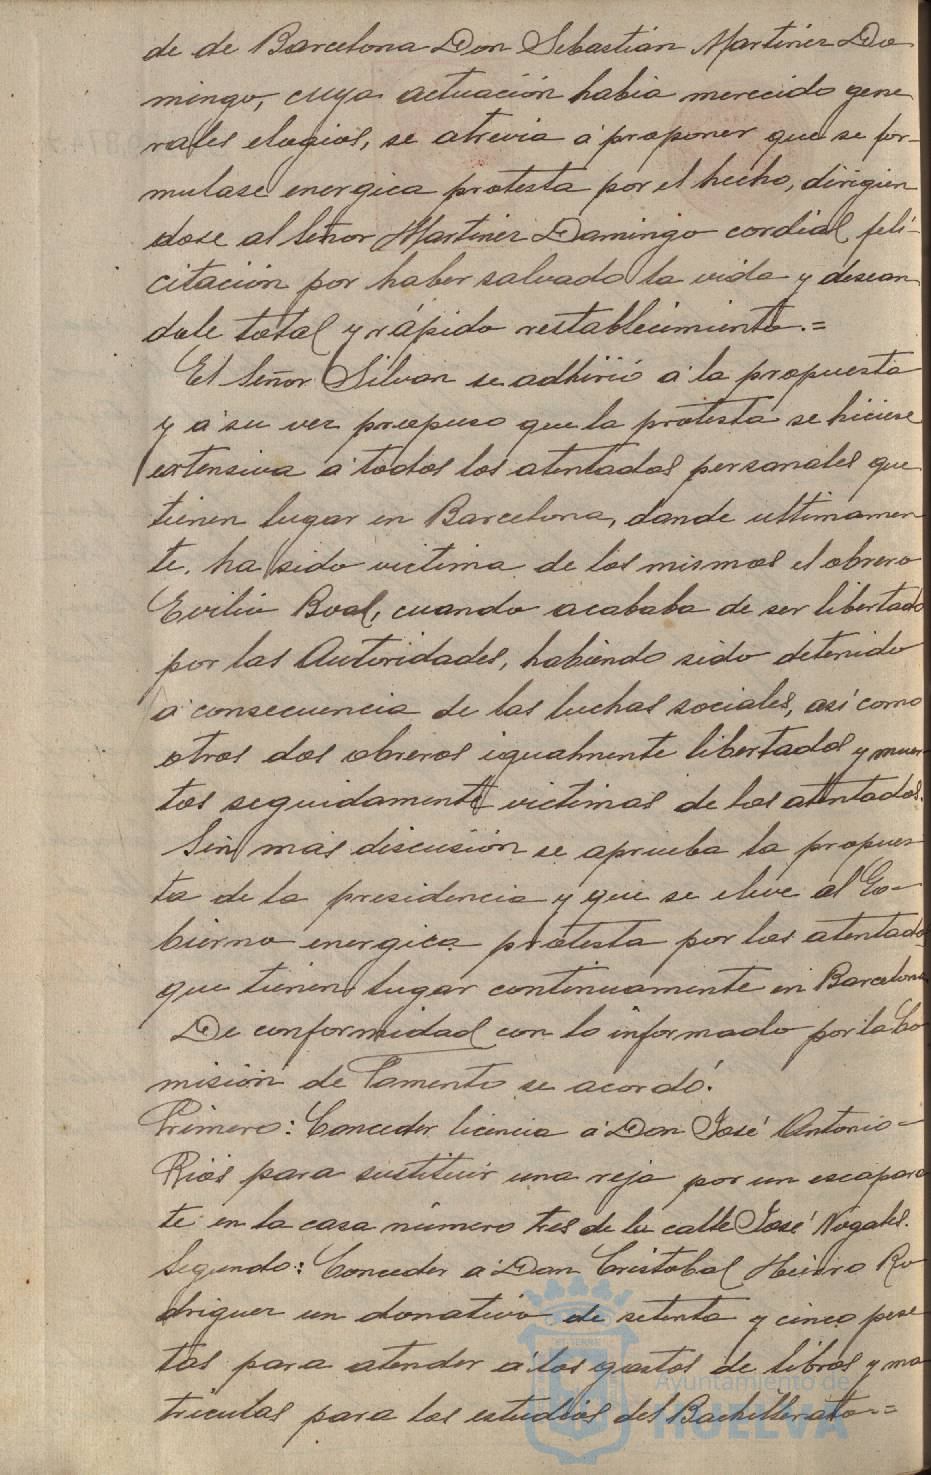 de de Barcelona Don Sebastián Martinez Do
mingo, cuya actuación habia merecido gene
rales elogios, se atrevia á proponer que se for-
mulase energica protesta por el hecho, dirigien
dose al Señor Martinez Domingo cordial feli-
citación por haber salvado la vida y desean
dole total y rápido restablecimiento.=
El Señor Silvan se adhirió á la propuesta
y á su vez propuso que la protesta se hiciese
extensiva á todos los atentados personales que
tienen lugar en Barcelona, donde ultimamen
te, ha sido victima de los mismos el obrero
Evilio Boal, cuando acababa de ser libertado
por las Autoridades, habiendo sido detenido
á consecuencia de las luchas sociales, así como
otros dos obreros igualmente libertados y muer
tos seguidamente victimas de los atentados.
Sin mas discusión se aprueba la propues
ta de la presidencia y que se eleve al Go-
bierno energica protesta por los atentados
que tienen lugar continuamente en Barcelona
De conformidad con lo informado por la Co
misión de Fomento se acordó:
Primero: Conceder licencia á Don José Antonio-
Rios para sustituir una reja por un escapara
te en la casa número tres de la calle José Nogales.
Segundo: Conceder á Don Cristobal Hierro Ro
driguez un donativo de setenta y cinco pese
tas para atender á los gastos de libros y ma
triculas para los estudios del Bachillerato.=
Ayuntamiento de
HUELVA